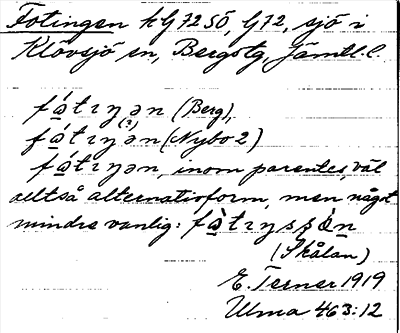 Fotingen kG 72 SÖ, G72, sjö i
Klövsjö sn, Bergstg, Jämtl. l.
fó̱tɪŋən (Berg),
fó̱tɪŋ(?)ən (Nybo 2)
fó̱tɪŋən, inom parentes, väl
alltså alternativform, men något
mindre vanlig: fò̱tɪŋsʃə̀n
(Skålan)
E. Terner 1919
Ulma 463:12